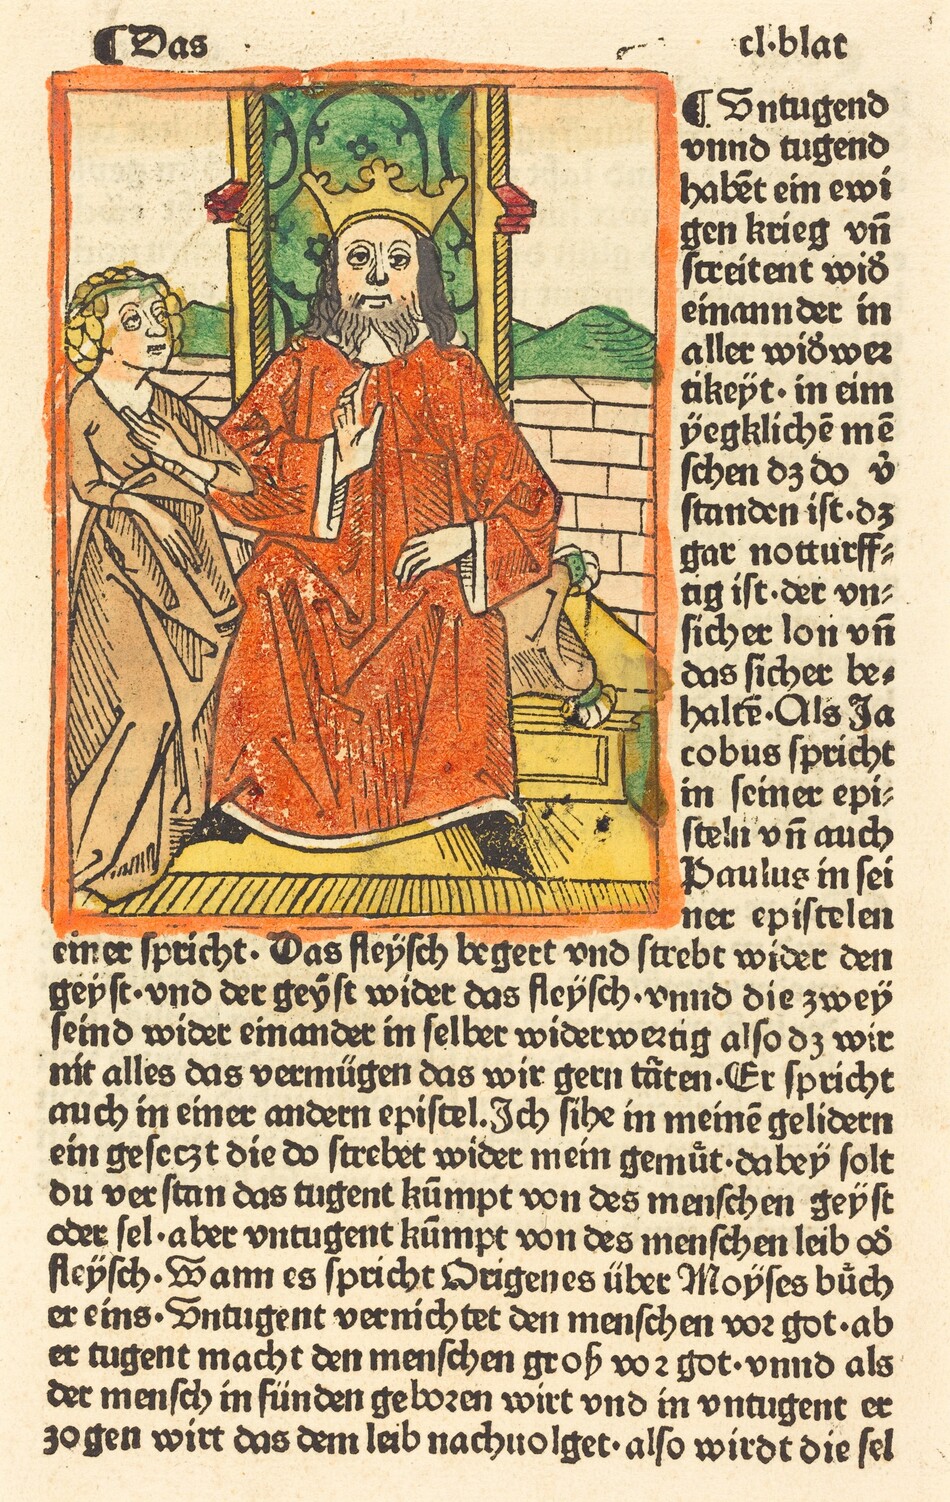 ¶ Das cl·blat
¶ Untugend
vnnd tugend
habẽt ein ewi
gen krieg vñ
streitent wiď
einannder in
aller wiďwer
tikeÿt· in eim
ÿegklichẽ mẽ
schen dz do v̉
standen ist·dz
gar notturff⸗
tig ist·der vn⸗
sicher lon vñ
das sicher be⸗
haltẽ·Als Ja
cobus spricht
in seiner epi⸗
steln vñ auch
Paulus in sei
ner epistelen
einer spricht· Das fleÿsch begert vnd strebt wider den
geÿst·vnd der geÿst wider das fleÿsch·vnnd die zweÿ
seind wider einander in selber widerwertig also dz wir
nit alles das vermügen das wir gern tãten·Er spricht
auch in einer andern epistel.Ich sihe in meinẽ gelidern
ein geseczt die do strebet wider mein gemuͤt·dabeÿ solt
du verstan das tugent kũmpt von des menschen geÿst
oder sel·aber vntugent kũmpt von des menschen leib oď
fleÿsch·Wann es spricht Origenes über Moÿses buͤch
er eins·Untugent vernichtet den menschen vor got·ab
er tugent macht den menschen groß vor got·vnnd als
der mensch in sünden geboren wirt vnd in vntugent er
zogen wirt das dem leib nachuolget·also wirdt die sel